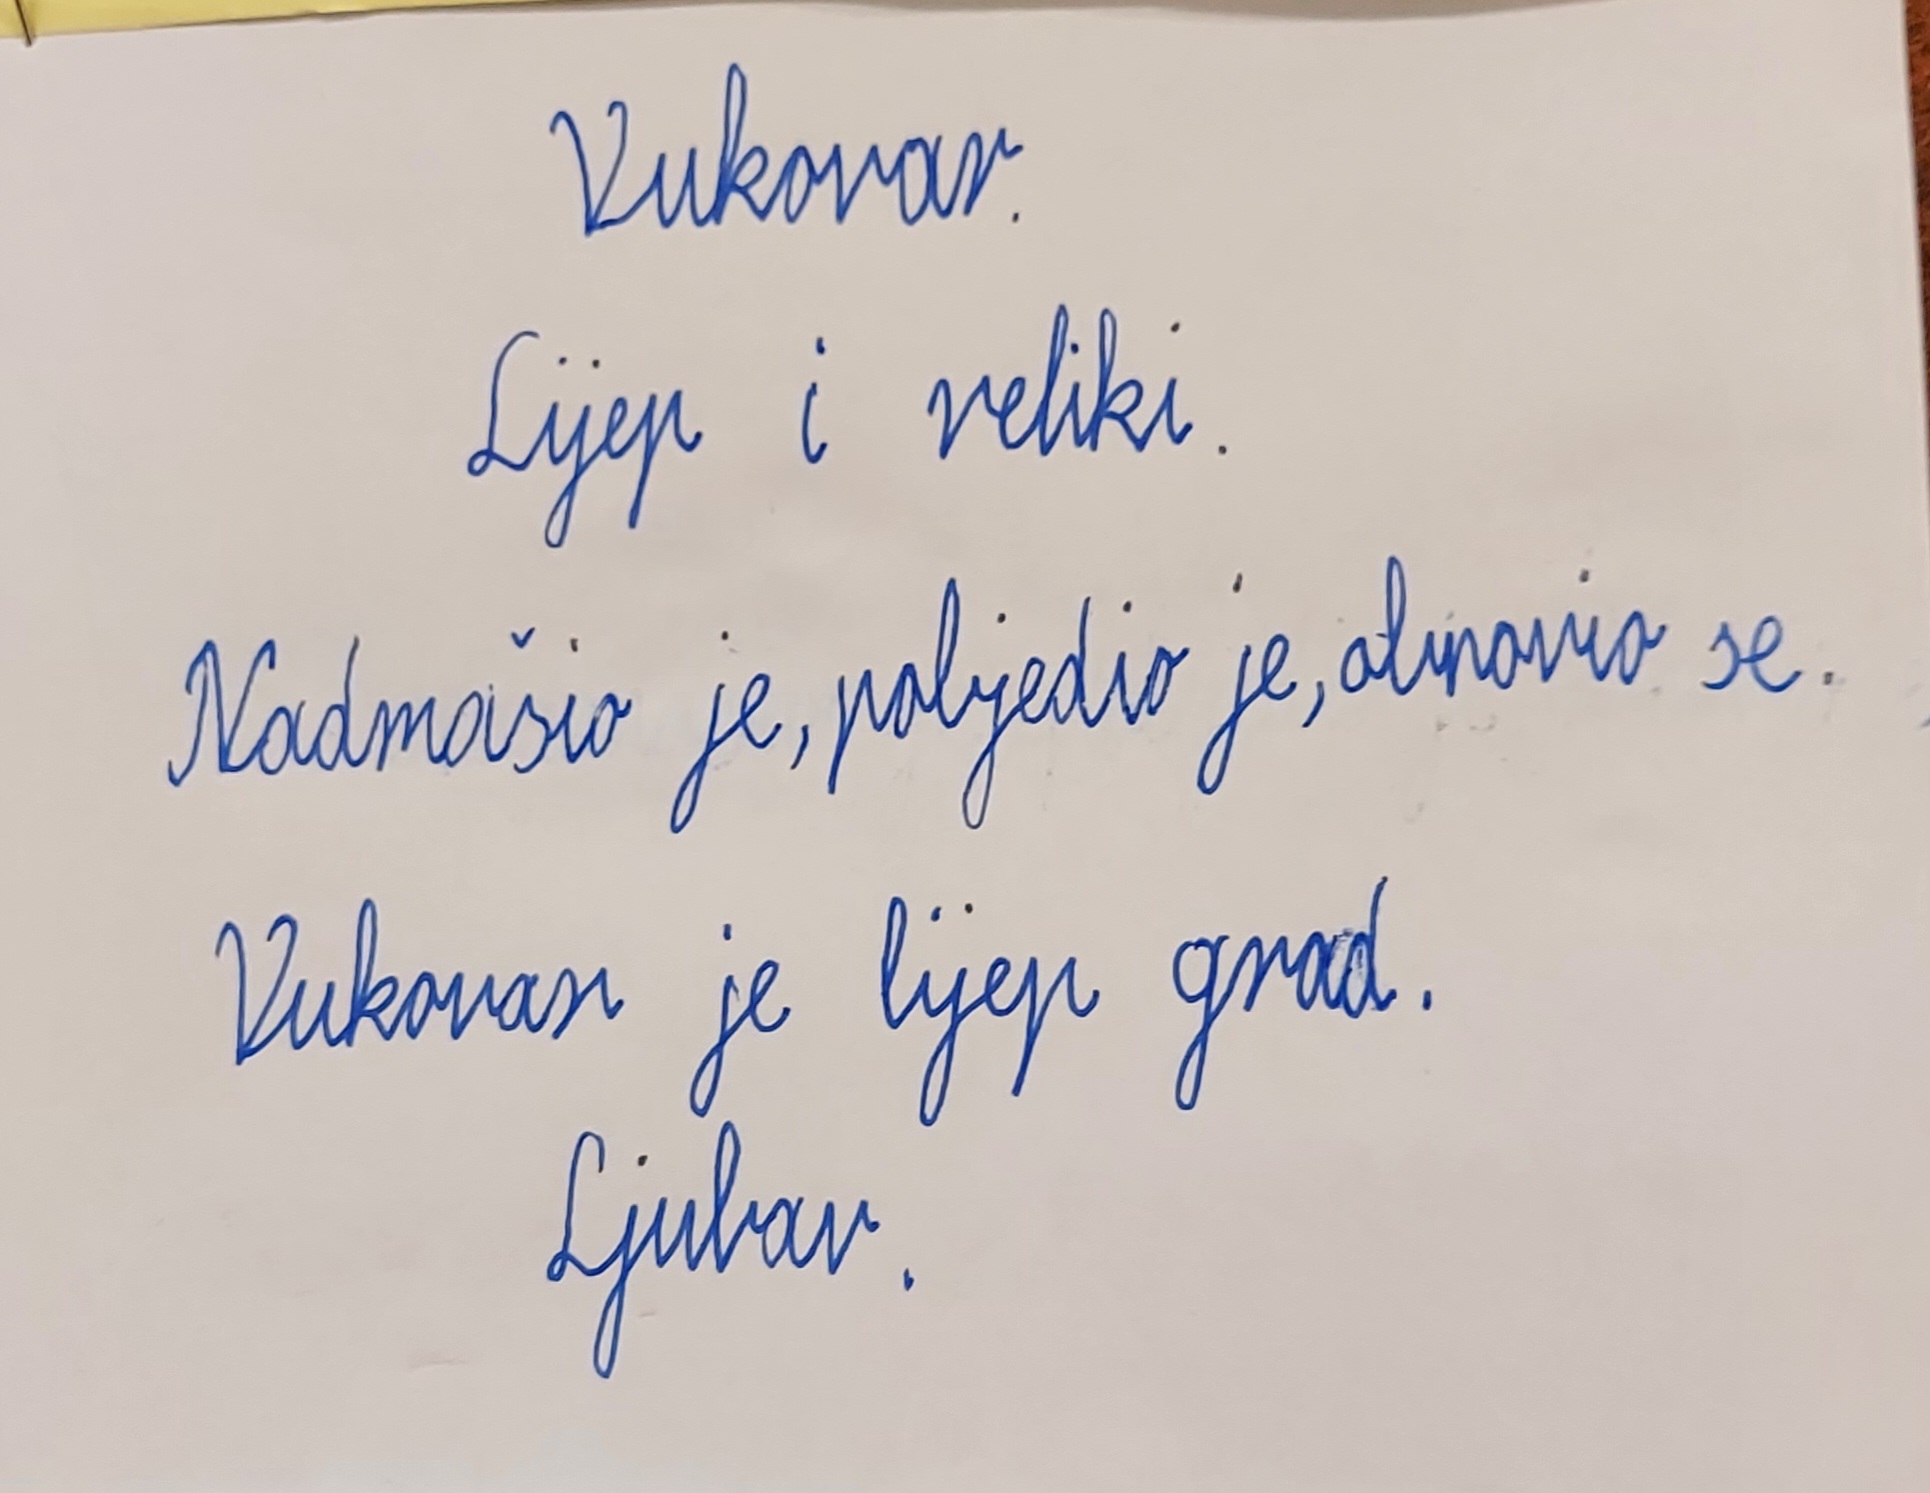 Vukovar.
Lijep i veliki.
Nadmašio je, pobjedio je, obnovio se.
Vukovar je lijep grad.
Ljubav.